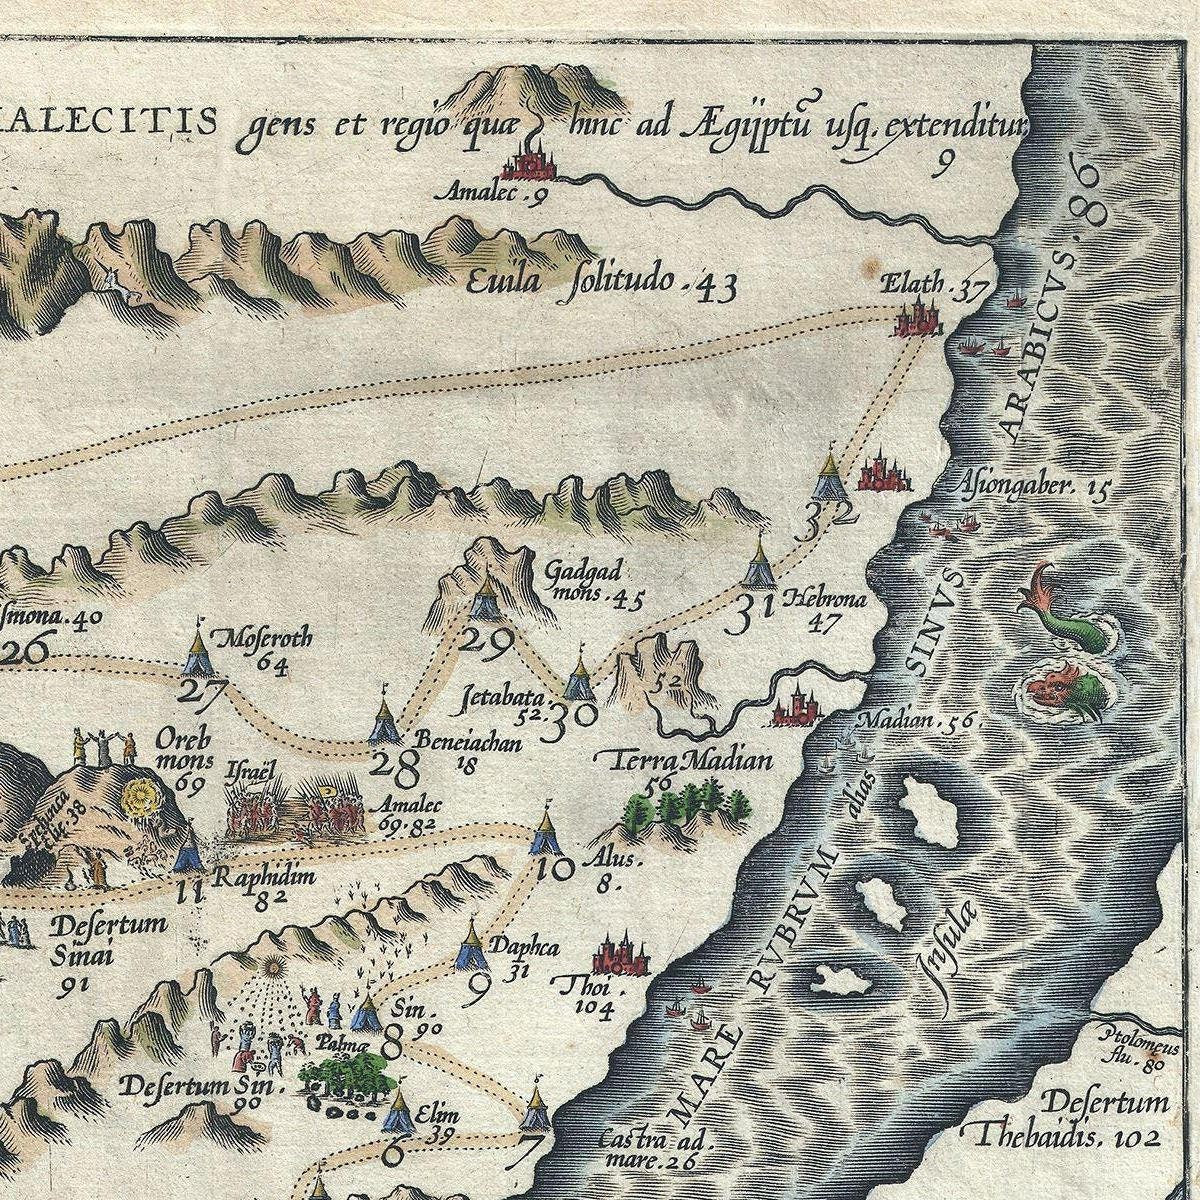 ALECITIS gens et regio quæ hinc ad Ægijptū uſq. extenditur
9
Amalec . 9
SINVS ARABICVS . 86
Euila ſolitudo . 43
Elath . 37
32
Aſiongaber. 15
Gadgad
mons . 45
29
31
Hebrona
47
ſmona. 40
26
Moſeroth
64
27
Jetabata.
52.
30
52
Beneiachan
18
28
Madian . 56 .
Terra Madian
56
Oreb
mons
69
Iſraël
Amalec
69. 82
38
10
Alus .
8 .
11
Raphidim
82
Deſertum
Sinai
91
Daphca
31
9
Thoi .
104
Sin .
90
8
Palmæ
Deſertum Sin .
90
Elim
39
6
7
Castra ad .
mare . 26
MARE RVBRVM alias
Inſulæ
Ptolomeus
flu . 80
Deſertum
Thebaidis. 102